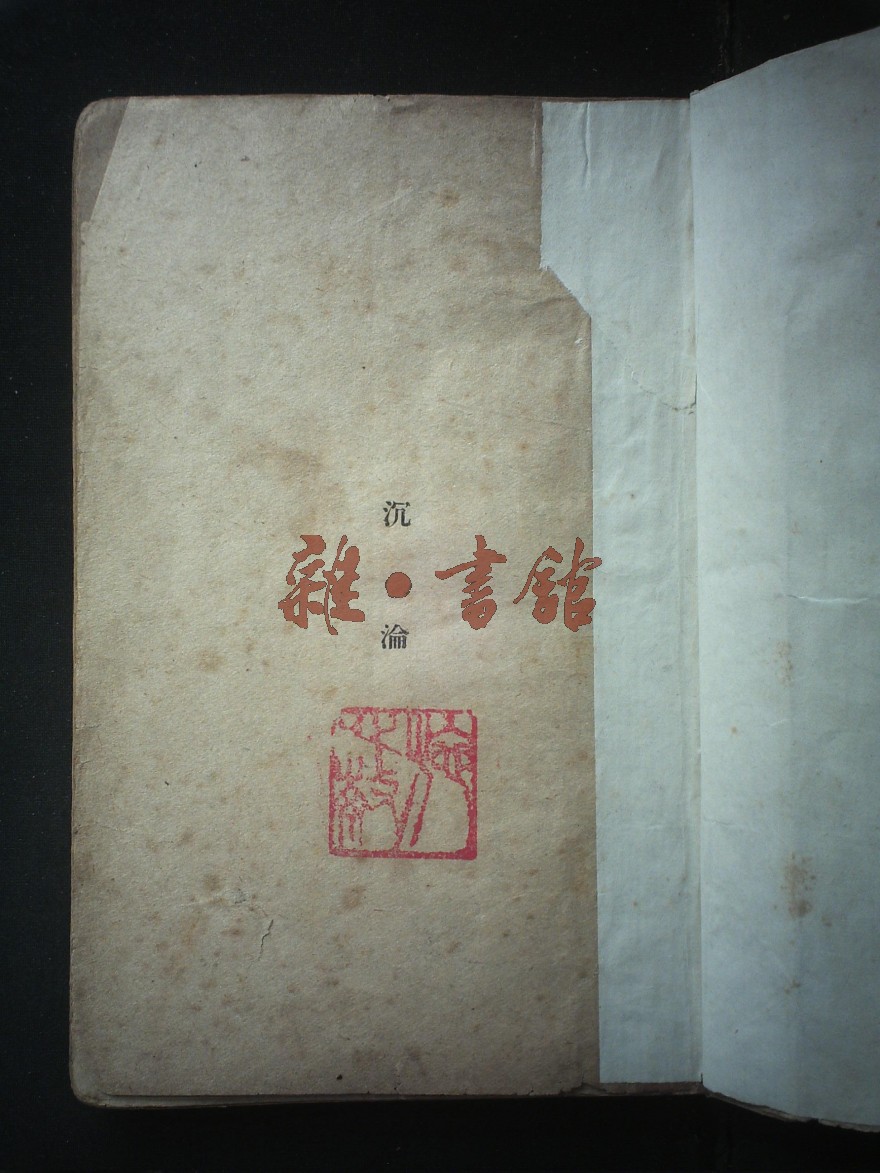 沉
雜·書舘
淪